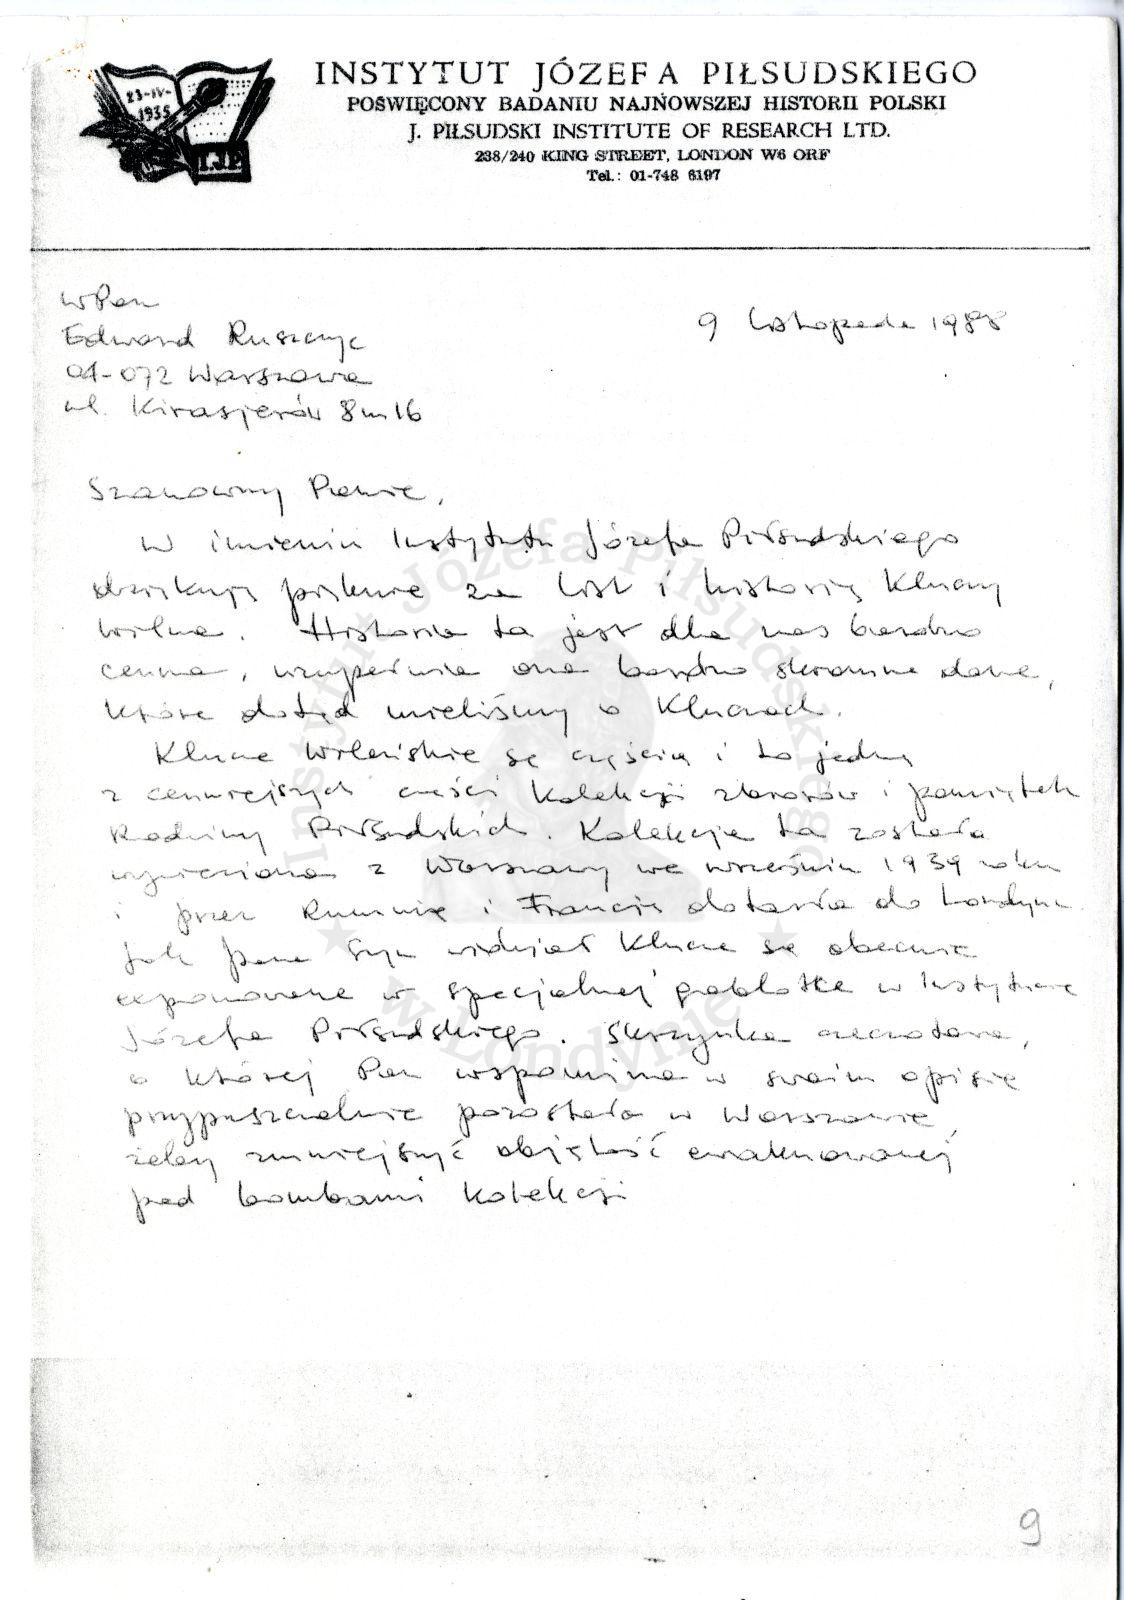 23-IV-
1935
I.J.P.
INSTYTUT JÓZEFA PIŁSUDSKIEGO
POŚWIĘCONY BADANIU NAJNOWSZEJ HISTORII POLSKI
J. PIŁSUDSKI INSTITUTE OF RESEARCH LTD.
238/240 KING STREET, LONDON W6 ORF
Tel.: 01-748 6197
WPan
Edward Ruszczyc
04-072 Warszawa
ul. Kirasjerów 8 m 16
9 listopada 1988
Szanowny Panie,
W imieniu Instytutu Józefa Piłsudskiego
dziękuję pięknie za list i historię Kluczy
Wilna. Historia ta jest dla nas bardzo
cenna, uzupełnia ona bardzo skromne dane,
które dotąd mieliśmy o Kluczach.
Klucze Wileńskie są częścią i to jedną
z cenniejszych części Kolekcji zbiorów i pamiątek
Rodziny Piłsudskich. Kolekcja ta została
wywieziona z Warszawy we wrześniu 1939 roku
i przez Rumunię i Francję dotarła do Londynu.
Jak Pana Syn widział Klucze są obecnie
exponowane w specjalnej gablotce w Instytucie
Józefa Piłsudskiego. Skrzynka czeczotowa,
o której Pan wspomina w swoim opisie
przypuszczalnie pozostała w Warszawie,
żeby zmniejszyć objętość ewakuowanej
pod bombami kolekcji
9
Instytut Józefa Piłsudskiego
w Londynie